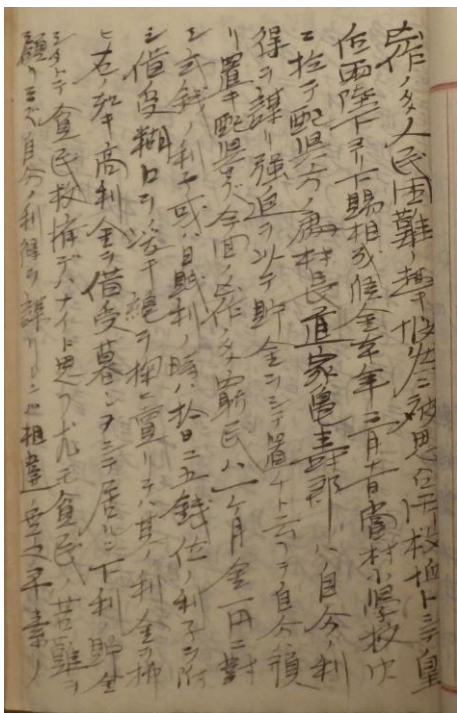 凶作ノタメ人民困難ノ趣キ被思召サレ救恤トシテ皇
后両陛下ヨリ下賜相成候金本年三月十日當村小學校ニ
ニ於テ配與方ノ處村長道家亀壽郎ハ自分ノ利
得ヲ謀リ強迫ヲ以テ貯金ヲシテ置ケト云フテ自分預
リ置キ配與セズ今回凶作ノタメ窮民ハ一ケ月金一円ニ對
シ弐銭ノ利子或ハ日賦利ノ時ハ拾日ニ五銭位ノ利子ヲ附
シ借受糊口ヲ
ヒ右ノ如キ高利金ヲ借受暮シヲシテ居ルニ下利ノ貯金
シタトテ貧民救済デハナイト思フ尤モ貧民ノ苦難ヲ
顧リミズ自分ノ利得ヲ謀リシニ相違無之早素ノ